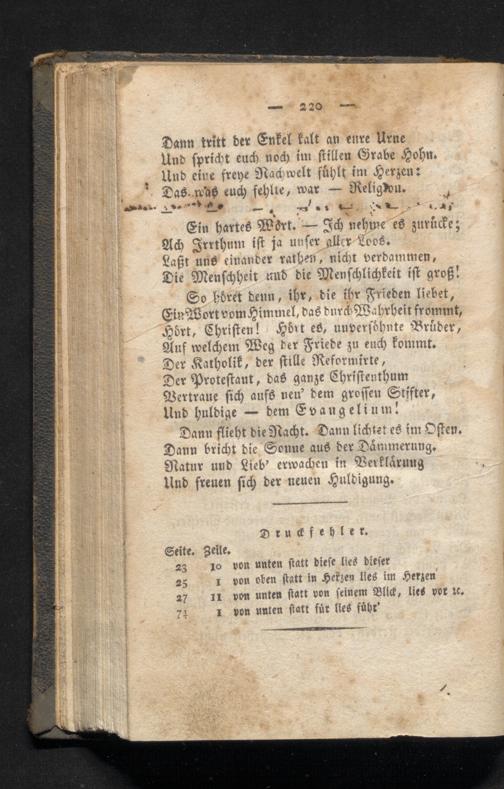 — 220 —
Dann tritt der Enkel kalt an eure Urne
Und spricht euch noch im stillen Grabe Hohn.
Und eine freye Nachwelt fühlt im Herzen:
Das was euch fehlte, war — Religion.
Ein hartes Wort. — Ich nehme es zurücke;
Ach Irrthum ist ja unser aller Loos.
Laßt uns einander rathen, nicht verdammen,
Die Menschheit und die Menschlichkeit ist groß!
So höret denn, ihr, die ihr Frieden liebet,
Ein Wort vom Himmel, das durch Wahrheit frommt,
Hört, Christen! Hört es, unversöhnte Brüder,
Auf welchem Weg der Friede zu euch kommt.
Der Katholik, der stille Reformirte,
Der Protestant, das ganze Christenthum
Vertraue sich aufs neu' dem grossen Stifter,
Und huldige — dem Evangelium!
Dann flieht die Nacht. Dann lichtet es im Osten.
Dann bricht die Sonne aus der Dämmerung.
Natur und Lieb' erwachen in Verklärung
Und freuen sich der neuen Huldigung.
Druckfehler.
Seite. Zeile.
23 10 von unten statt diese lies dieser
25 1 von oben statt in Herzen lies im Herzen
27 11 von unten statt von seinem Blick, lies vor ꝛc.
74 1 von unten statt für lies führ'